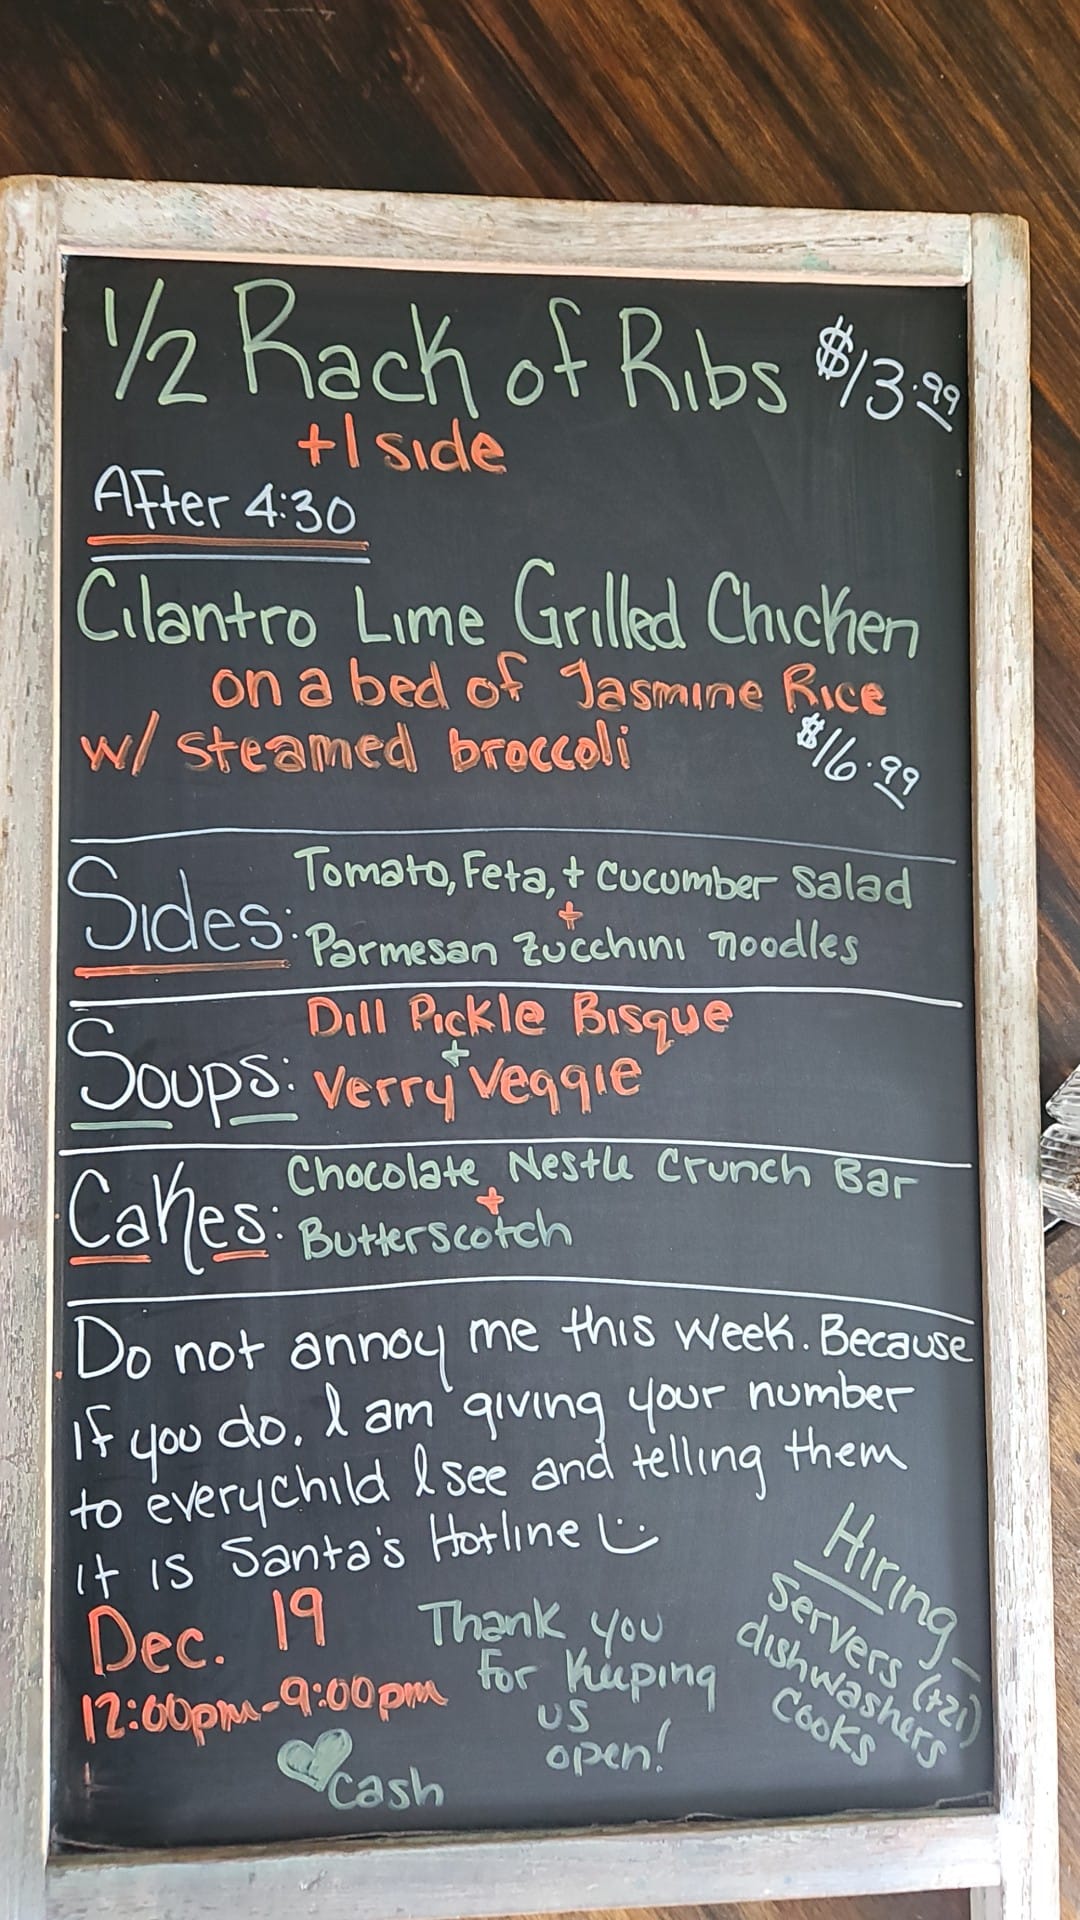 1/2 Rack of Ribs $13.99
+1 side
After 4:30
Cilantro Lime Grilled Chicken
on a bed of Jasmine Rice
w/ steamed broccoli $16.99
Sides: Tomato, Feta, + Cucumber Salad
+
Parmesan Zucchini noodles
Soups: Dill Pickle Bisque
+
Verry Veggie
Cakes: Chocolate Nestle Crunch Bar
+
Butterscotch
Do not annoy me this week. Because
if you do, I am giving your number
to everychild I see and telling them
it is Santa's Hotline
Dec. 19
12:00pm-9:00pm
Thank you
for keeping
us
open!
Hiring
Servers (+21)
dishwashers
Cooks
Cash